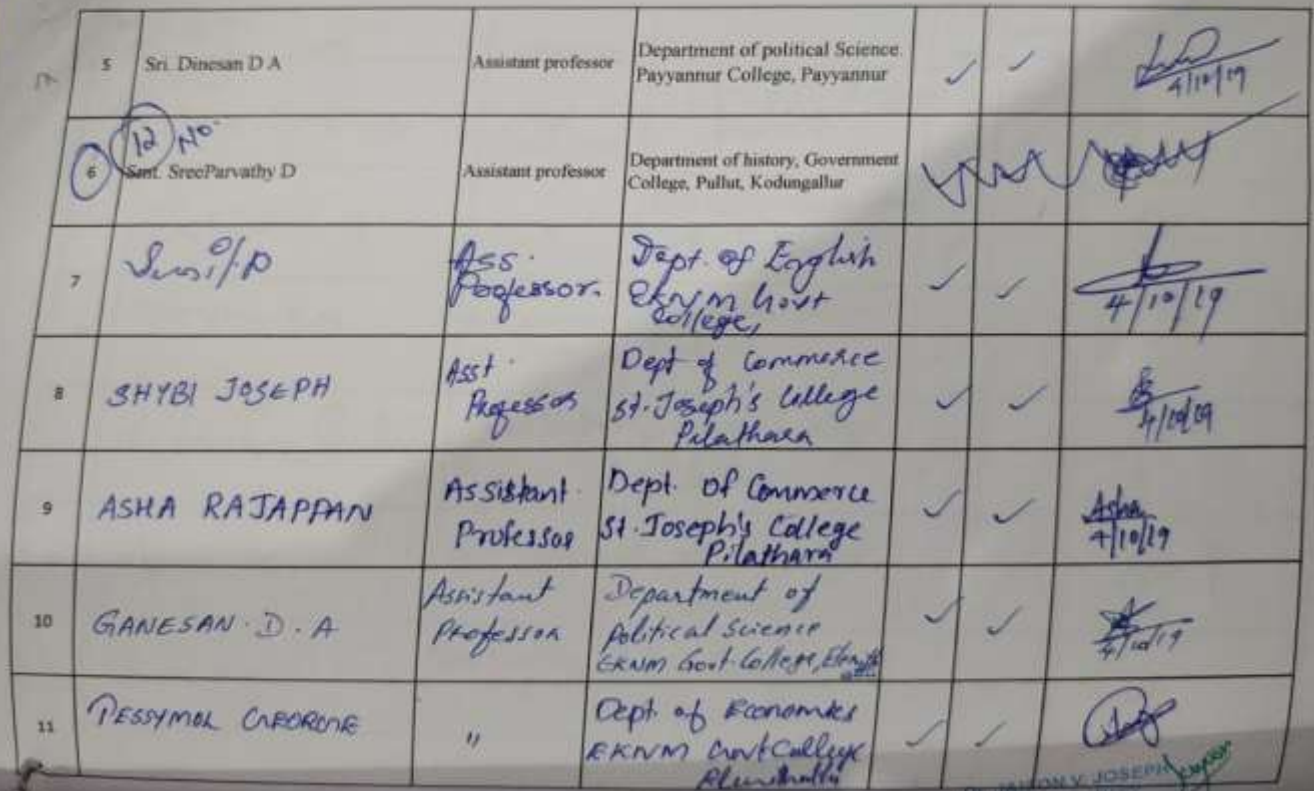 5 Sri. Dinesan D A Assistant professor Department of political Science.
Payyannur College, Payyannur
4/10/19
12 No.
6 Smt. SreeParvathy D Assistant professor Department of history, Government
College, Pullut, Kodungallur
7 Ass.
Professor.
Dept. of English
EKNM Govt
College,
4/10/19
8 SHYBI JOSEPH Asst.
Professor
Dept of Commerce
St. Joseph's College
Pilathara
4/10/19
9 ASHA RAJAPPAN Assistant
Professor
Dept. Of Commerce
St. Joseph's College
Pilathara
Asha
4/10/19
10 GANESAN. D. A Assistant
Professor
Department of
Political Science
EKNM Govt. College,
4/10/19
11 GEORGE "
Dept. of Economics
EKNM Govt College
V. JOSEPH